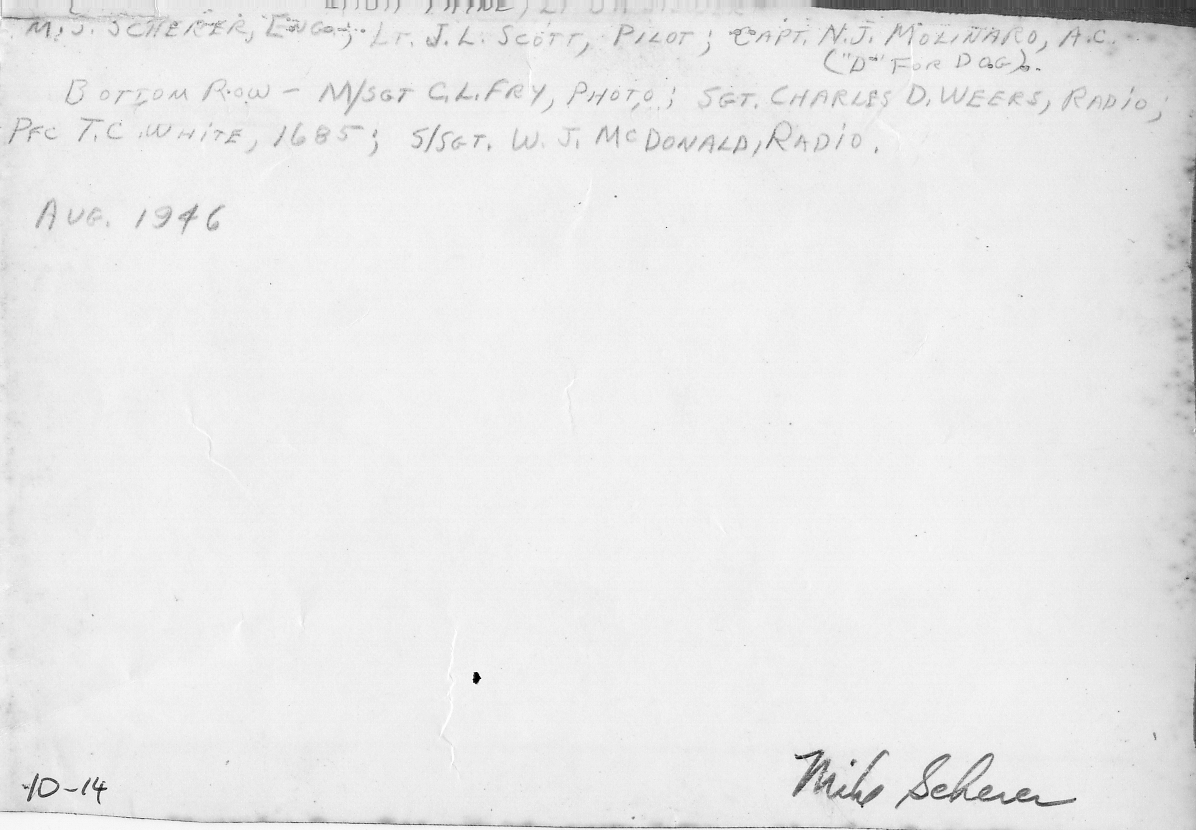 M.J. SCHERER, ENG.; LT. J.L. SCOTT, PILOT; CAPT. N.J. MOLINARO, A.C.
("D" FOR DOG).
BOTTOM ROW - M/SGT C.L. FRY, PHOTO; SGT. CHARLES D. WEERS, RADIO;
PFC T.C. WHITE, 1685; S/SGT. W. J. McDONALD, RADIO.
AUG. 1946
10-14
Mike Scherer